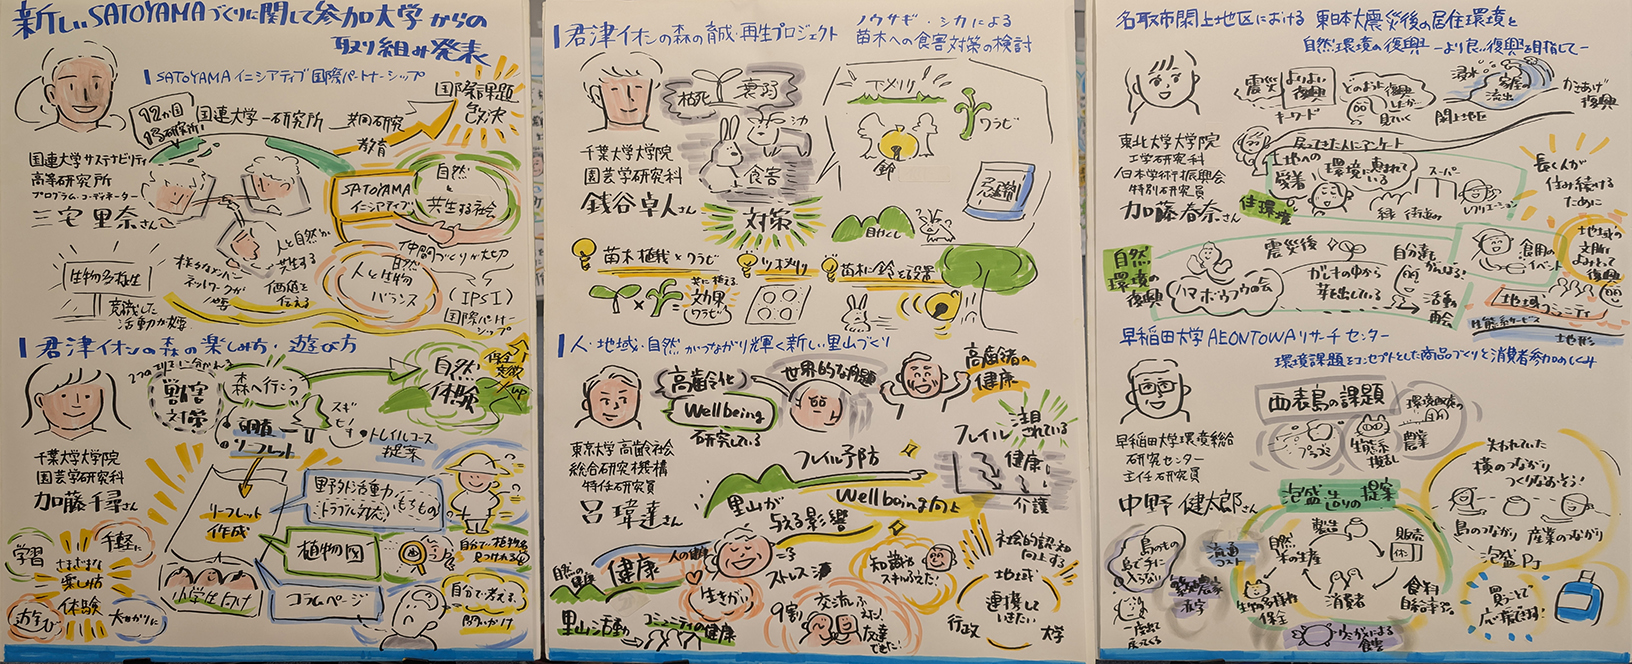 新しいSATOYAMAづくりに関して参加大学からの
取り組み発表
SATOYAMAイニシアティブ国際パートナーシップ
国連大学サステナビリティ
高等研究所
プログラム・コーディネーター
三宅里奈さん
国連大学ー研究所
共同研究
教育
国際課題
自然
と
共生する社会
SATOYAMA
イニシアティブ
人と自然が
共生する
価値を
伝える
仲間づくりが大切
自然
人と生物
バランス
(IPSI)
国際パートナー
シップ
生物多様性
意識した
活動が必要
君津イオンの森の楽しみ方・遊び方
千葉大学大学院
園芸学研究科
加藤千尋さん
対策
森へ行こう
リーフレット
スギ
トレイルコース
提案
自然
体験
リーフレット
作成
野外活動
トラブル対応
もちもの
植物図
コラムページ
小学生向け
自分で考える
問いかけ
学習
手軽に
さまざまな
楽しみ方
体験
遊び
君津イオンの森の育成・再生プロジェクト
ノウサギ・シカによる
苗木への食害対策の検討
千葉大学大学院
園芸学研究科
鋑谷卓人さん
枯死
衰弱
シカ
食害
対策
ワラビ
鈴
目かくし
苗木植栽×ワラビ
ツボメリ
苗木に鈴を設置
効果
ワラビ
人・地域・自然がつながり輝く新しい里山づくり
東京大学高齢社会
総合研究機構
特任研究員
呂偉達さん
高齢化
世界的な問題
Wellbeing
研究している
高齢者の
健康
フレイル
注目
されている
健康
介護
フレイル予防
Wellbeing向上
里山が
与える影響
自然の健康
人の健康
健康
里山活動
コミュニティの健康
生きがい
ストレス
知識や
スキルふえた!
9割
交流ふえた!
友達
できた!
社会的認知
向上する
地域
連携して
いきたい
行政
大学
名取市閖上地区における 東日本大震災後の居住環境と
自然環境の復興 ーより良い復興を目指してー
東北大学大学院
工学研究科
日本学術振興会
特別研究員
加藤春奈さん
震災
よりよい
復興
キーワード
どのように復興
したか
見ていく
浸水
家屋の
流出
閖上地区
かさあげ
復興
戻ってきた人にアンケート
土地への
愛着
環境に恵まれて
いる
スーパー
緑
レクリエーション
住環境
長く人が
住み続ける
ために
自然
環境の
復興
震災後
ハマボウフウの会
ガレキの中から
芽を出している
自分達も
がんばろう!
活動
再会
食用の
イベント
地域の
復興
地域コミュニティ
生態系サービス
地形
早稲田大学AEONTOWAリサーチセンター
環境課題をコンセプトとした商品づくりと消費者参加のしくみ
早稲田大学環境総合
研究センター
主任研究員
中野健太郎さん
西表島の課題
プラごみ
生態系
撹乱
農業
泡盛造りの提案
製造
販売
自然
米の生産
消費者
生物多様性
保全
食料
自給率
流通
コスト
島のもの
島で手に
入らない
失われていた
横のつながり
つくりなおそう!
島のつながり
産業のつながり
泡盛PJ
買うことで
応援できます!
ウミガメによる
食害